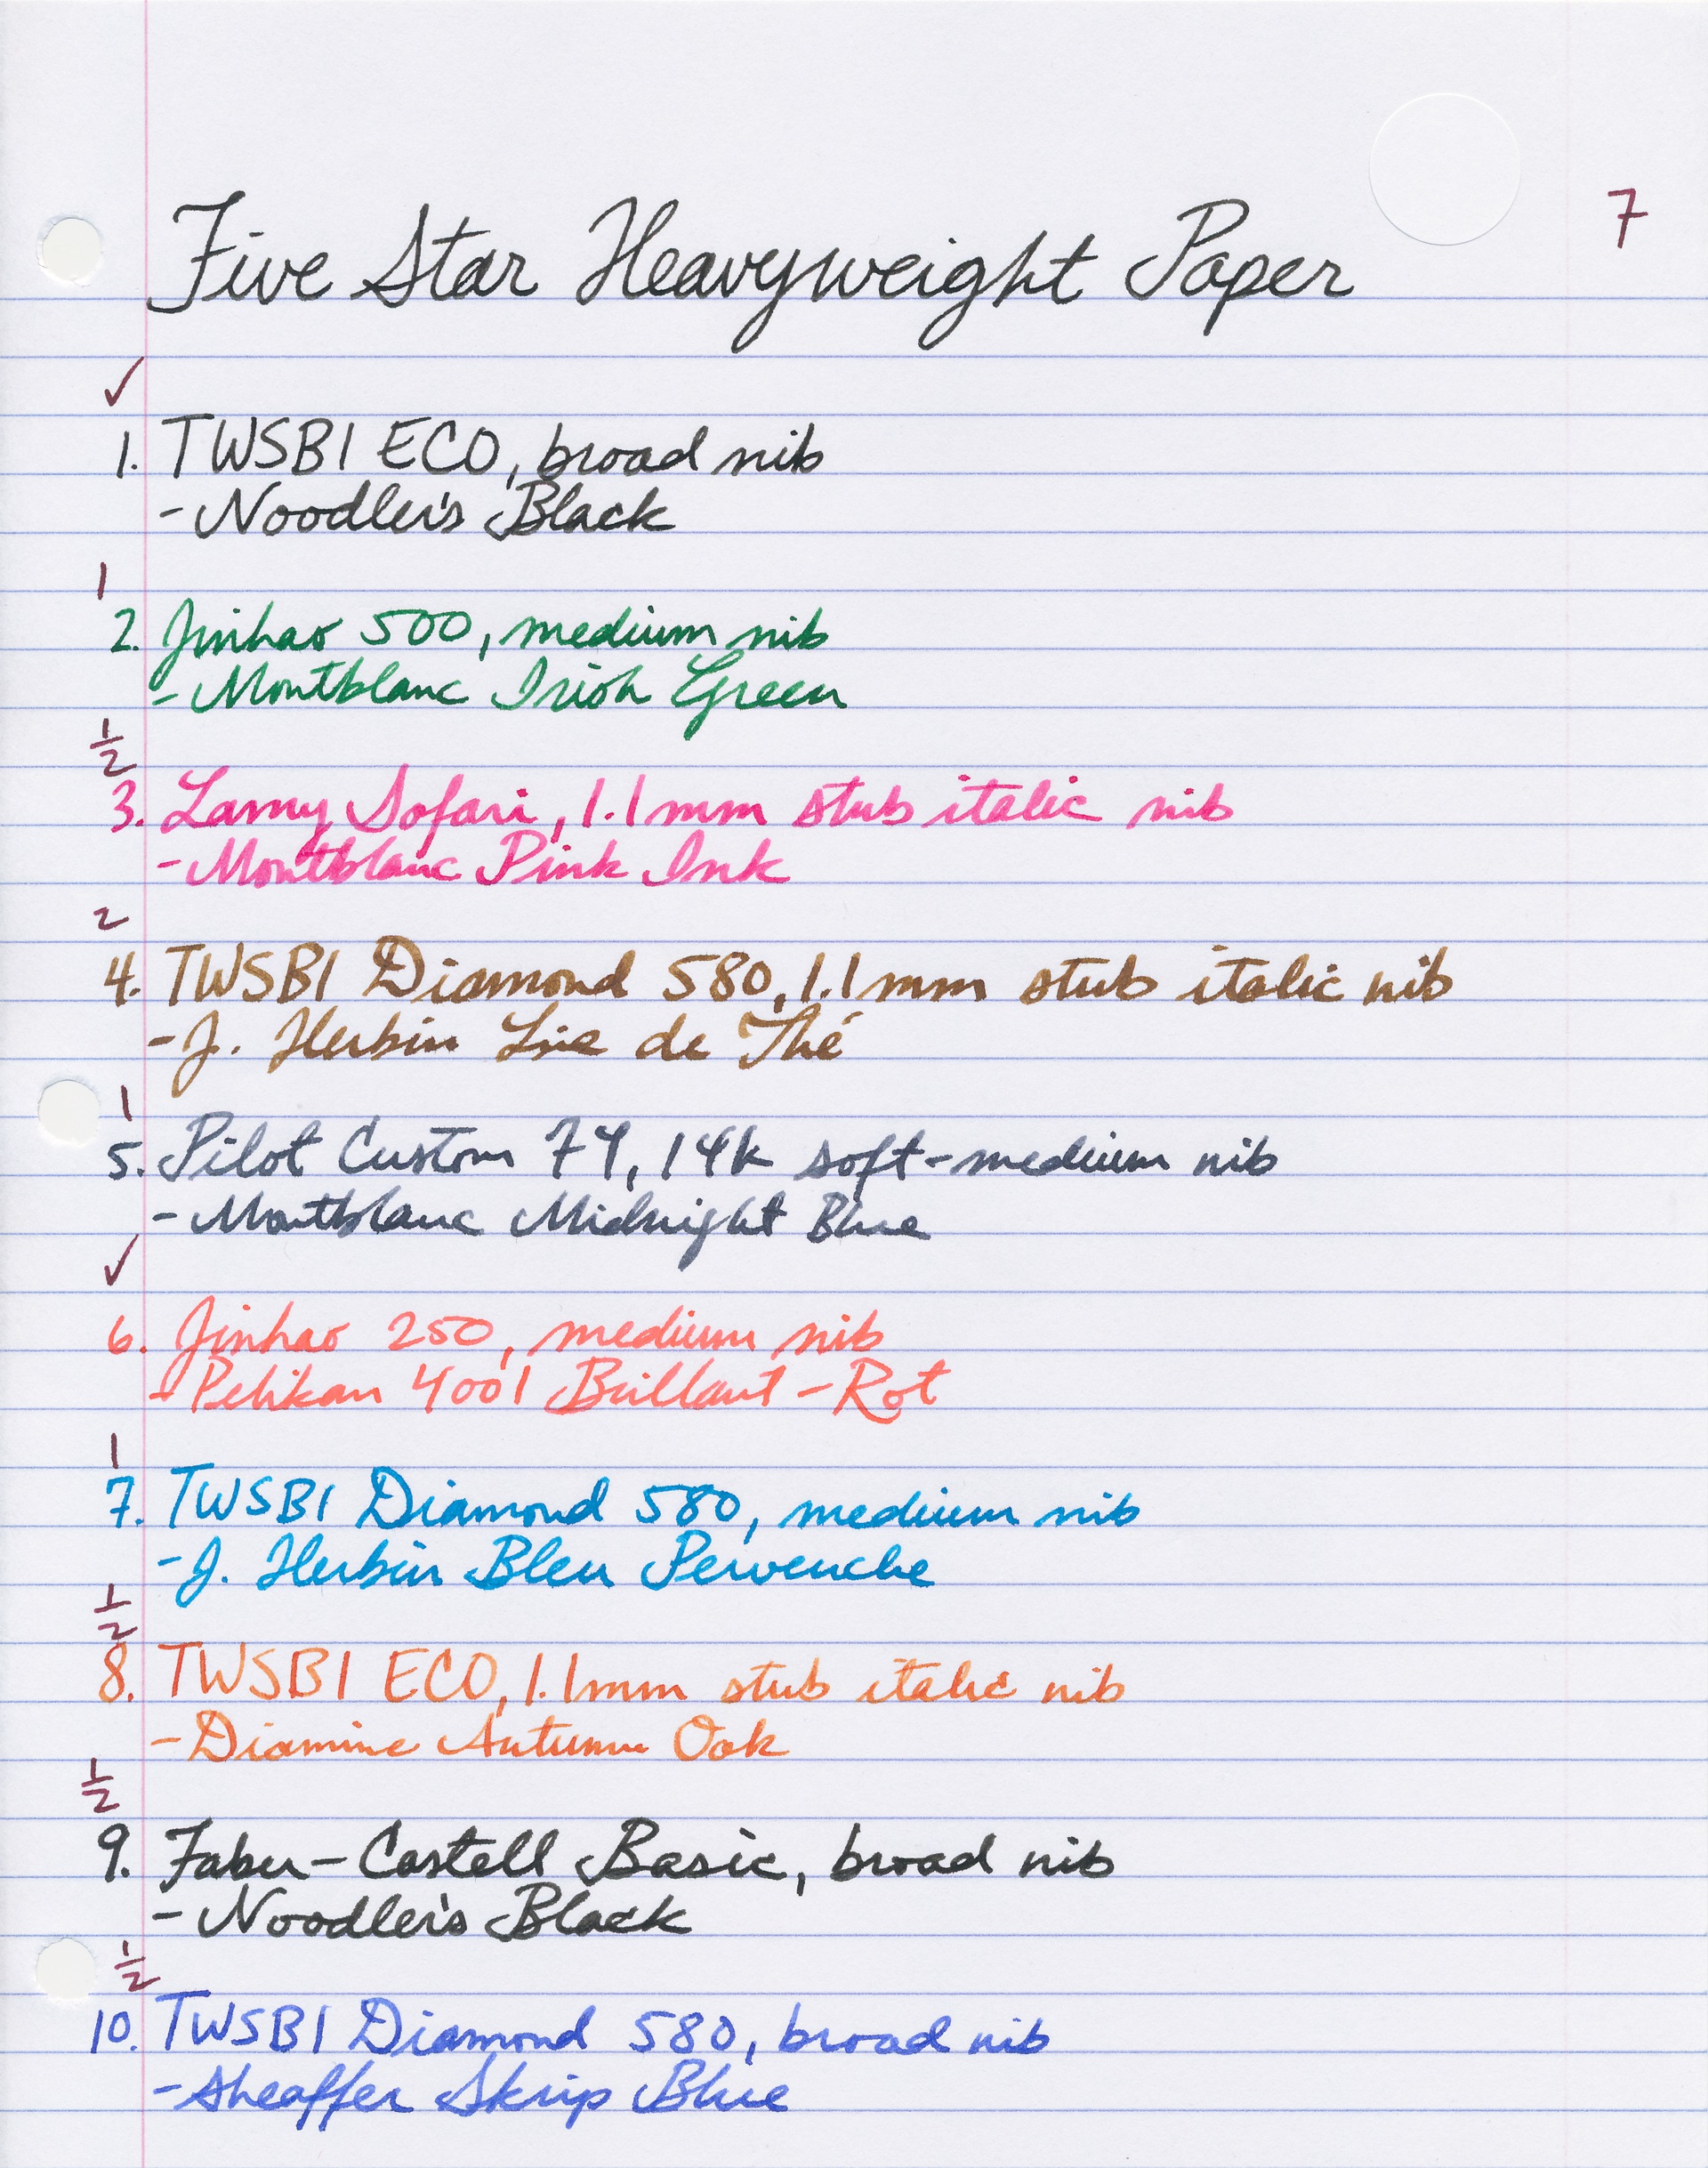 7
Five Star Heavyweight Paper
✓
1. TWSBI ECO, broad nib
- Noodler's Black
1
2. Jinhao 500, medium nib
- Montblanc Irish Green
1/2
3. Lamy Safari, 1.1mm stub italic nib
- Montblanc Pink Ink
2
4. TWSBI Diamond 580, 1.1mm stub italic nib
- J. Herbin Lie de Thé
1
5. Pilot Custom 74, 14k soft-medium nib
- Montblanc Midnight Blue
✓
6. Jinhao 250, medium nib
- Pelikan 4001 Brillant-Rot
1
7. TWSBI Diamond 580, medium nib
- J. Herbin Bleu Pervenche
1/2
8. TWSBI ECO, 1.1mm stub italic nib
- Diamine Autumn Oak
1/2
9. Faber-Castell Basic, broad nib
- Noodler's Black
1/2
10. TWSBI Diamond 580, broad nib
- Sheaffer Skrip Blue